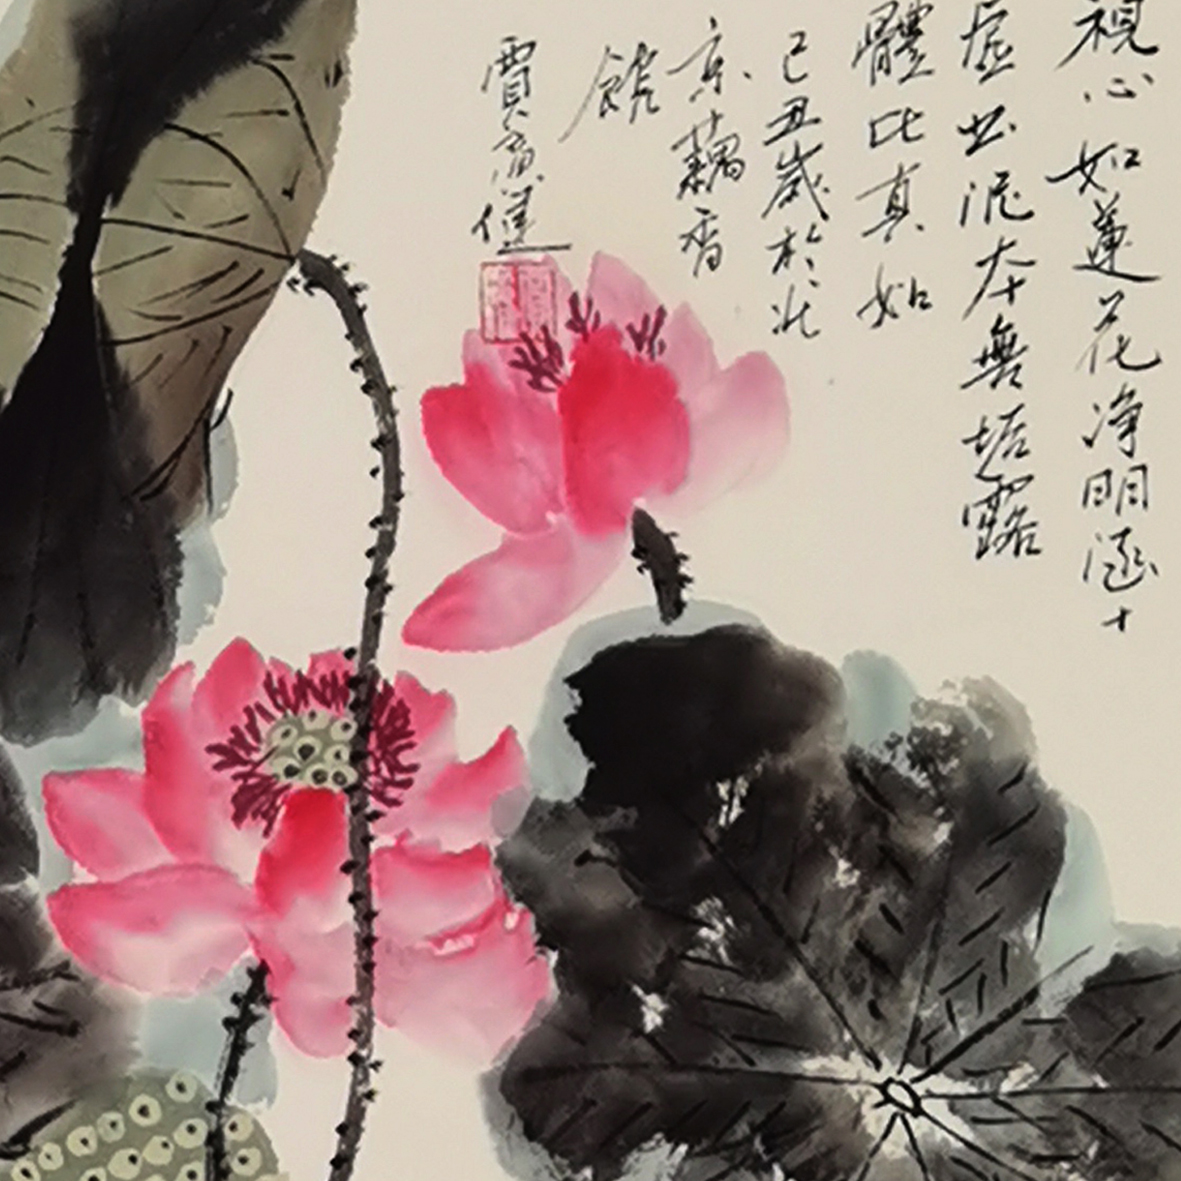 視心如蓮花净明涵十
虚出泥本無垢露
體比真如
己丑歲於北
京藕香
館
賈廣健